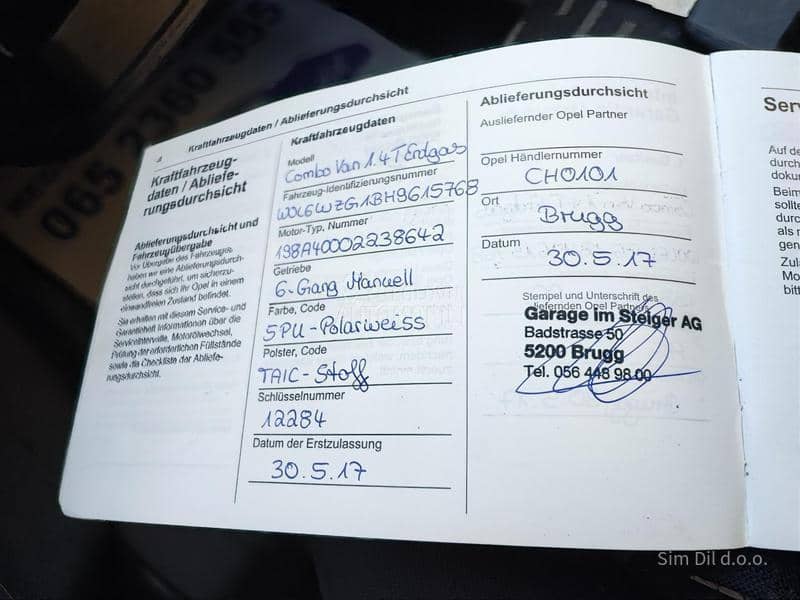 4
Kraftfahrzeugdaten / Ablieferungsdurchsicht
Kraftfahrzeug-
daten / Abliefe-
rungsdurchsicht
Ablieferungsdurchsicht und
Fahrzeugübergabe
Vor Übergabe des Fahrzeuges
haben wir eine Ablieferungsdurch-
sicht durchgeführt, um sicherzu-
stellen, dass sich Ihr Opel in einem
einwandfreien Zustand befindet.
Sie erhalten mit diesem Service- und
Garantieheft Informationen über die
Serviceintervalle, Motorölwechsel,
Prüfung der erforderlichen Füllstände
sowie die Checkliste der Abliefe-
rungsdurchsicht.
Kraftfahrzeugdaten
Modell
Combo Van 1.4 T Erdgas
Fahrzeug-Identifizierungsnummer
W0L6WZG1BH9615768
Motor-Typ, Nummer
198A40002238642
Getriebe
6-Gang Manuell
Farbe, Code
5PU-Polarweiss
Polster, Code
TAIC-Stoff
Schlüsselnummer
12284
Datum der Erstzulassung
30.5.17
Ablieferungsdurchsicht
Ausliefernder Opel Partner
Opel Händlernummer
CH0101
Ort
Brugg
Datum
30.5.17
Stempel und Unterschrift des
liefernden Opel Partners
Garage im Steiger AG
Badstrasse 50
5200 Brugg
Tel. 056 448 98 00
Ser
Auf de
durch
dokur
Beim
sollte
durc
als r
gen
Zula
Mo
bitt
065 2360 555
Sim Dil d.o.o.